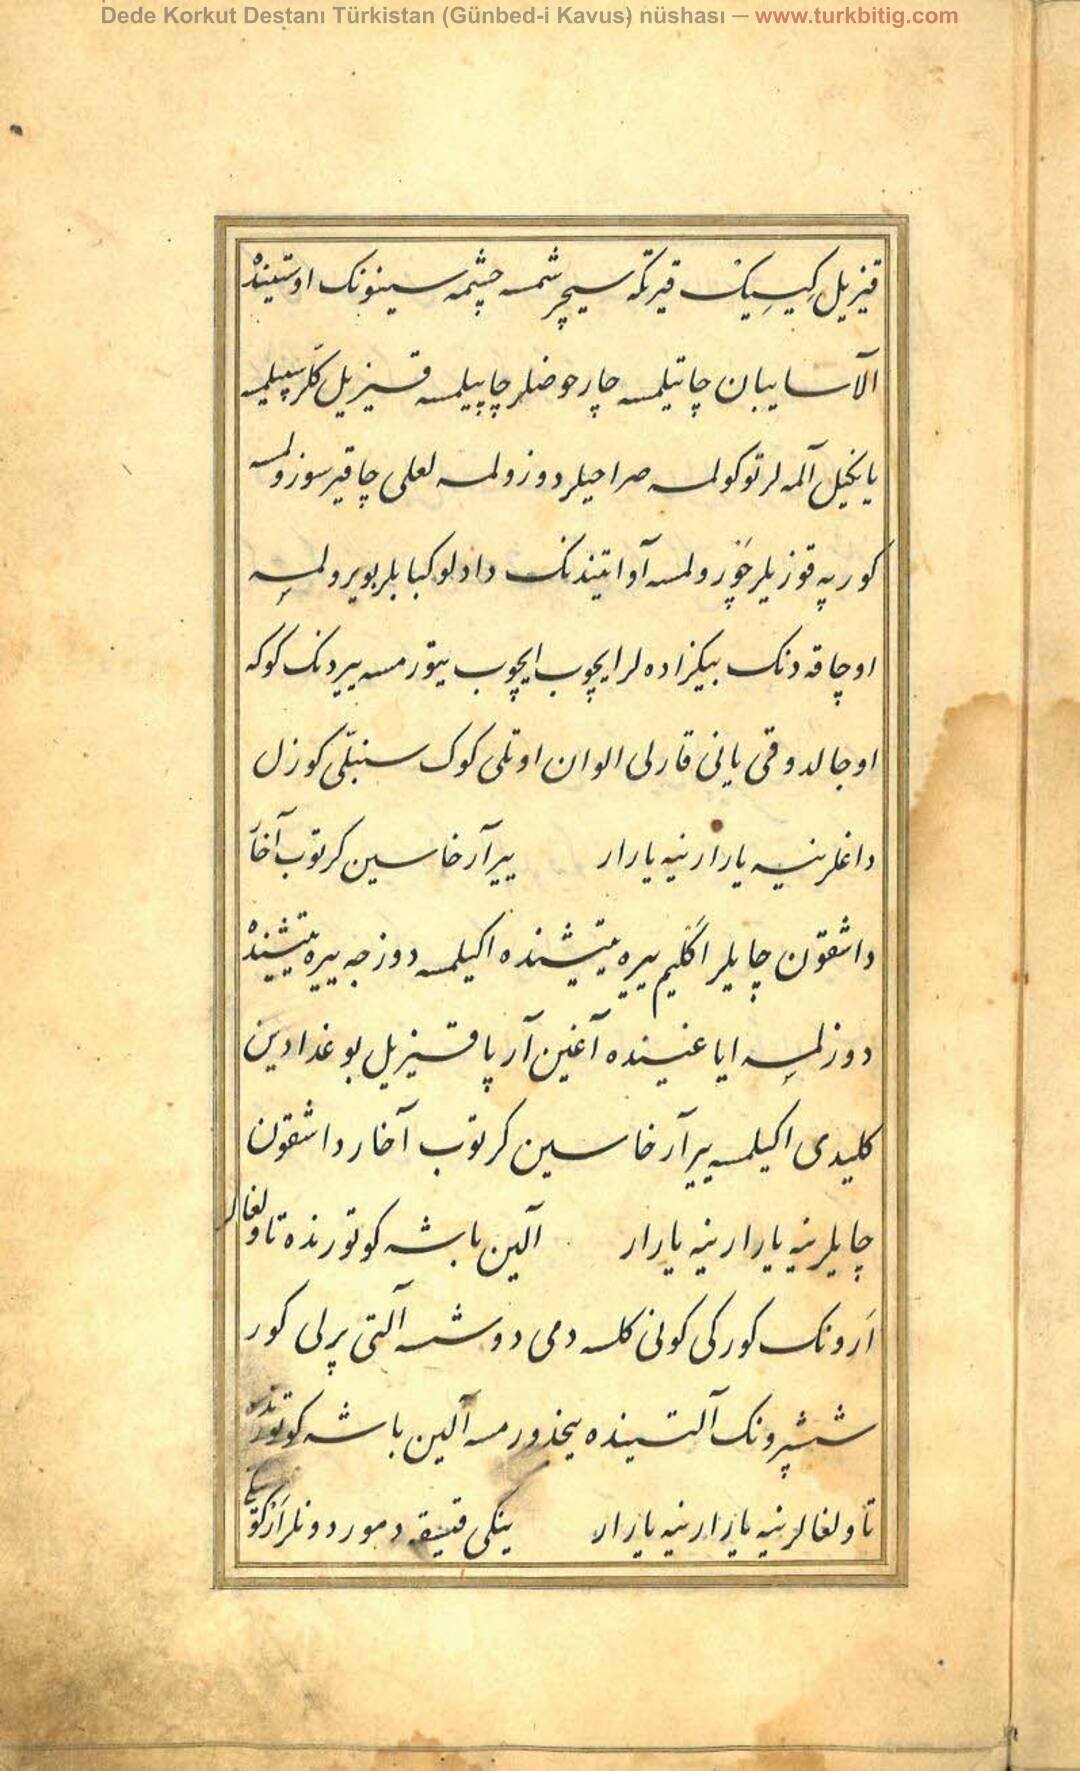 Dede Korkut Destanı Türkistan (Günbed-i Kavus) nüshası — www.turkbitig.com
قیزیل کیسیک قیرتکه سیچر شمسه چشمه سینونک اوستینده
آلا سایبان چاتیلمسه چار حوضلر چاپیلمسه قیزیل کلر سپیلمسه
یانکیل آلمه لر توکولمسه صراحیلر دوزولمسه لعلی چاقیر سوزولمسه
کورپه قوزیلر چورولمسه آو اتیندنک دادلو کبابلر بویرولمسه
اوچاقه دنک بیکزاده لر ایچوب ایچوب ییتورمسه ییردنک کوکه
اوجالدوقی یانی قارلی الوان اوتلی کوک سنبلی کوزل
داغلرینه یارار نیه یارار ییر آرخاسین کرتوب آخار
داشقون چایلر اکلیم ییره ییتیشنده اکیلمسه دوزجه ییره ییتیشینده
دوزلمسه ایاغینده آغین آرپا قیزیل بوغدادین
کلیدی اکیلمسه ییر آرخاسین کرتوب آخار داشقون
چایلرینه یارار نیه یارار آلین باشه کوتورنده تاولغالر
ارونک کورکی کونی کلسه دمی دوشسه آلتی پرلی کور
ششپرونک آلتینده ییخدورمسه آلین باشه کوتورنده
تاولغالرینه یارار نیه یارار ینکی قتیقه دمور دونلر